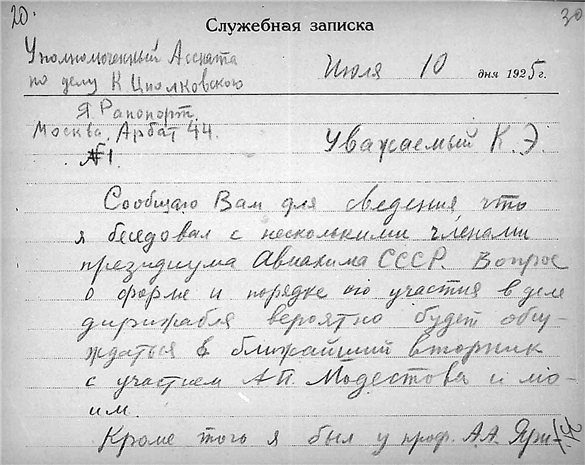 20.
30
Служебная записка
Уполномоченный Ассната
по делу К Циолковского
Июля 10 дня 1925 г.
Я. Рапопорт.
Москва, Арбат 44.
Уважаемый К. Э.
№1.
Сообщаю Вам для сведения что
я беседовал с несколькими членами
президиума Авиахима СССР. Вопрос
о форме и порядке его участия в деле
дирижабля вероятно будет обсу-
ждаться в ближайший вторник
с участием А.П. Модестова и мо-
им.
Кроме того я был у проф. А.А. Яри-